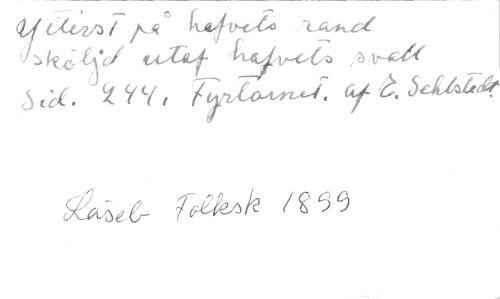 Ytterst på hafvets rand
sköljd utaf hafvets svall
Sid. 244, Fyrtornet. af E. Sehlstedt.
Läseb Folksk 1899